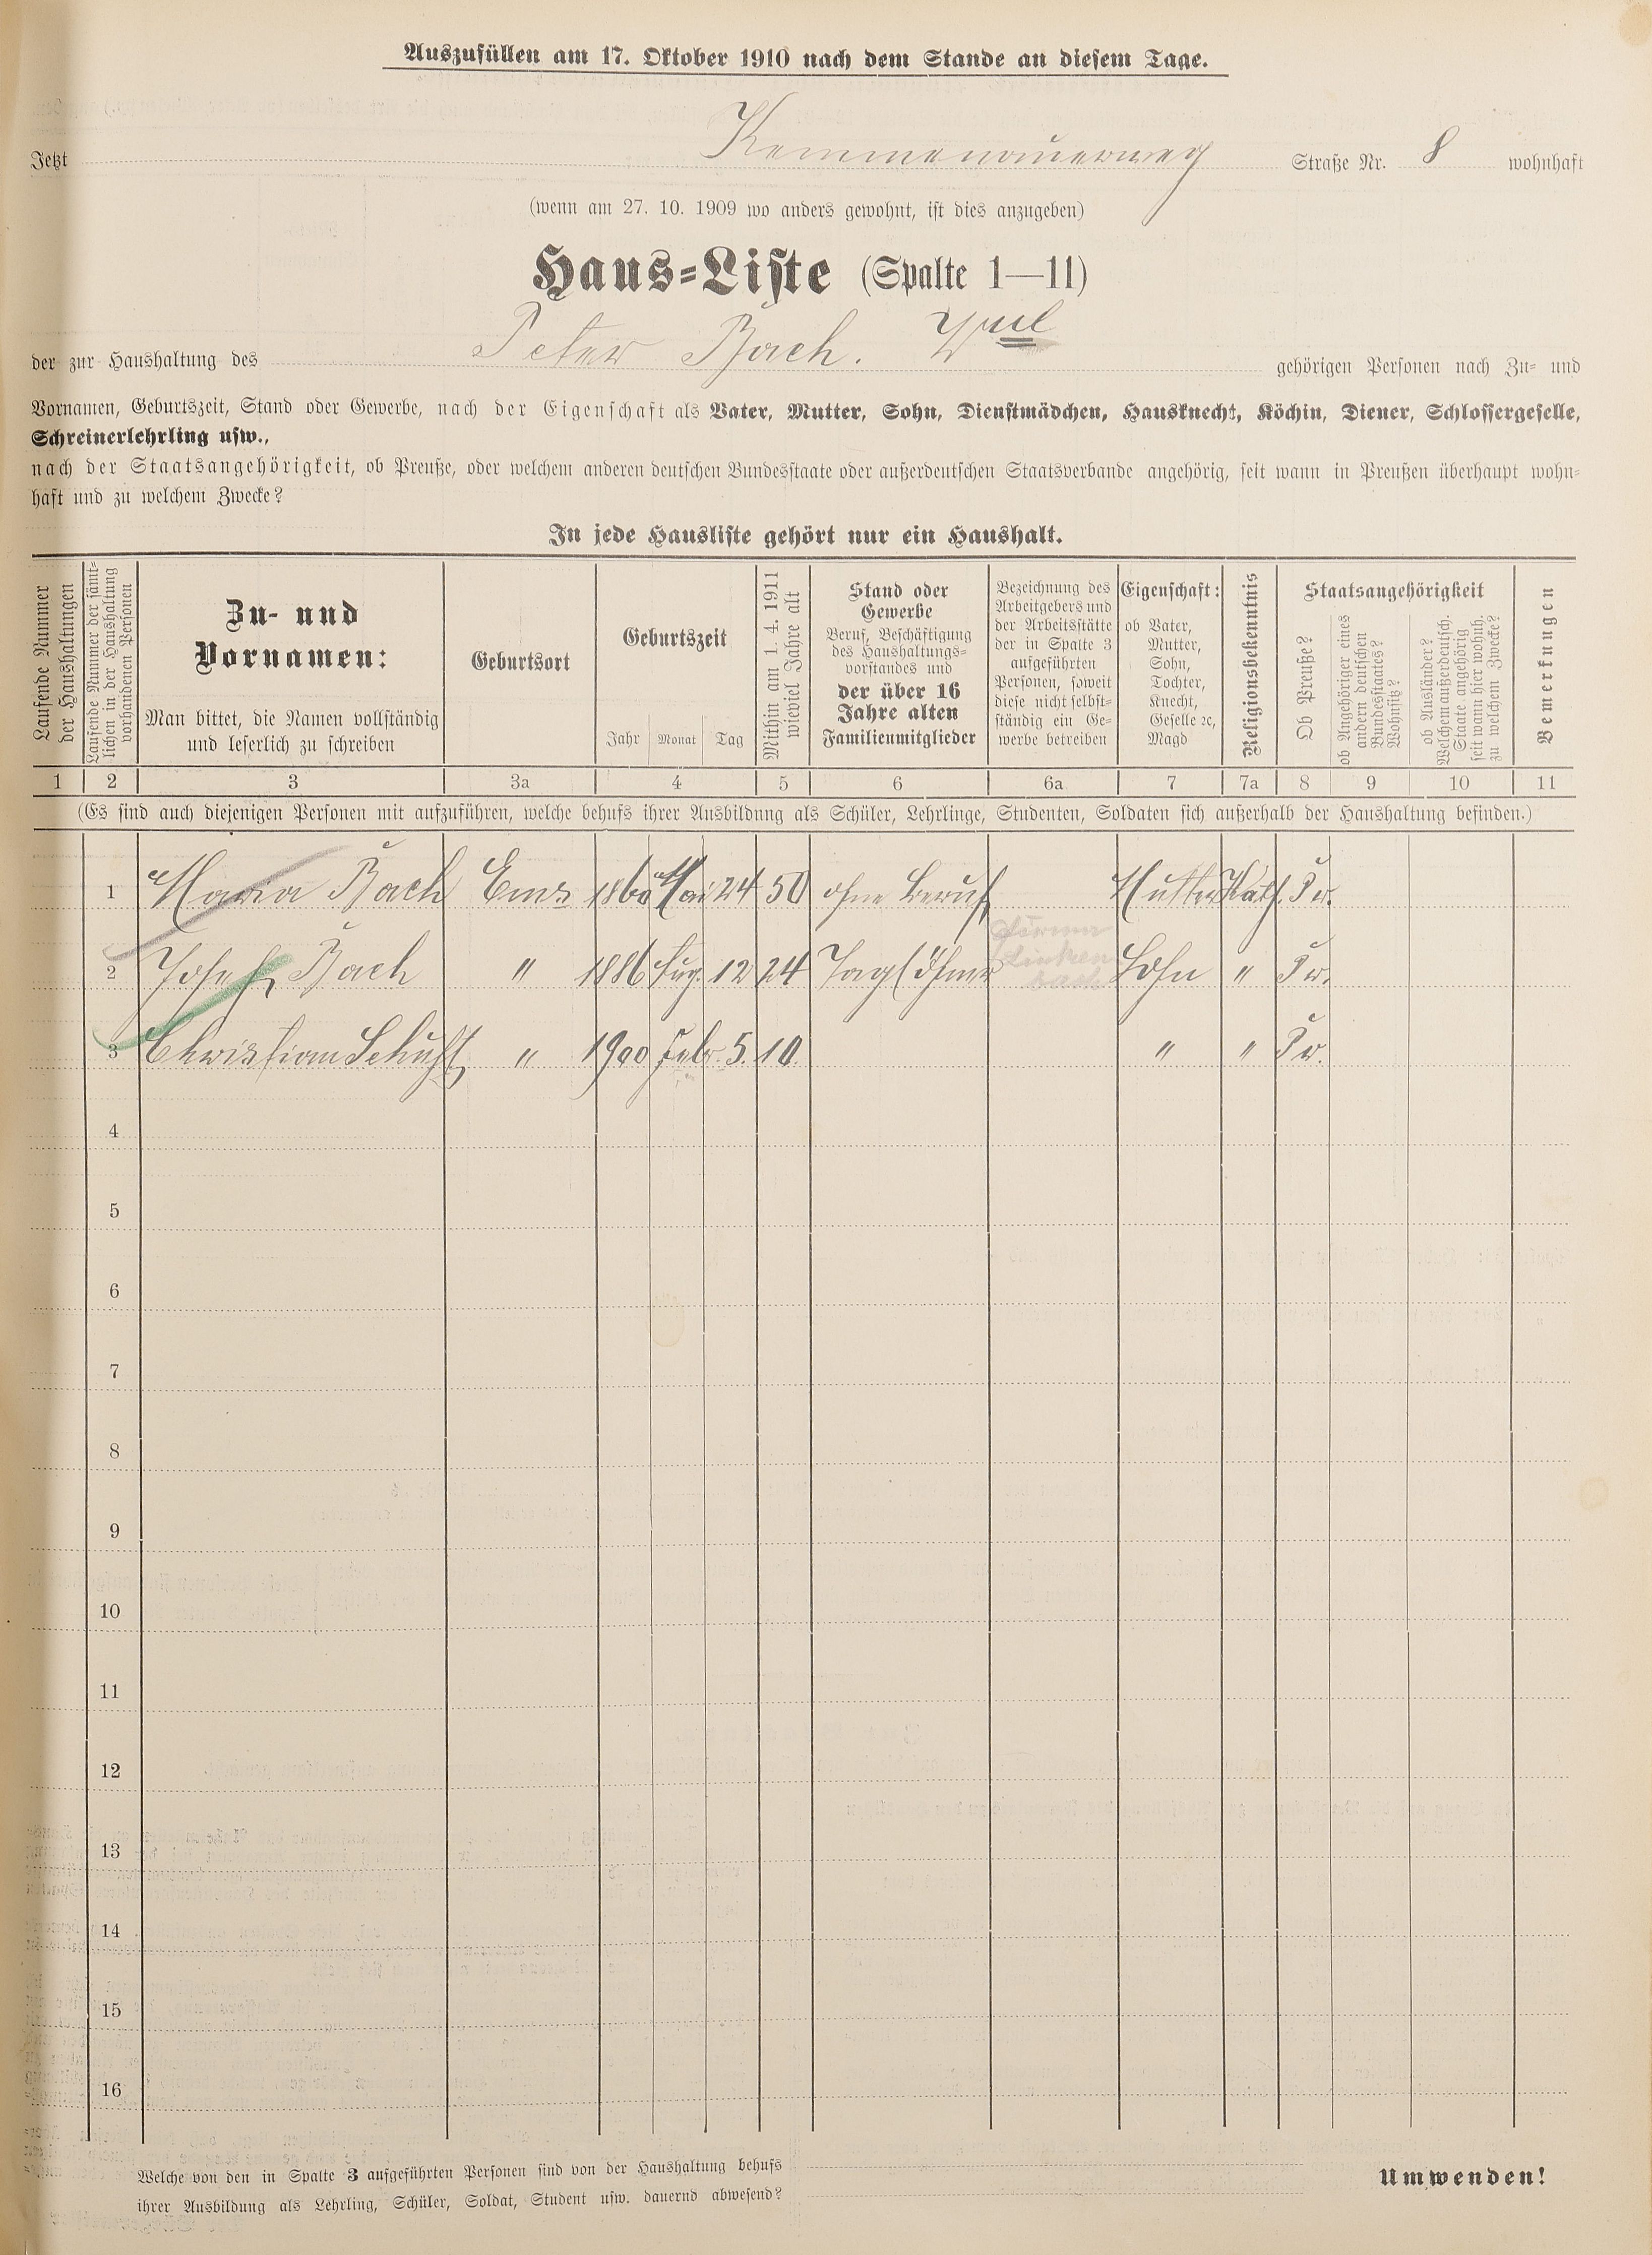 Auszufüllen am 17. Oktober 1910 nach dem Stande an diesem Tage.
Jetzt Kemmenauerweg Straße Nr. 8 wohnhaft
(wenn am 27. 10. 1909 wo anders gewohnt, ist dies anzugeben)
Haus-Liste (Spalte 1—11)
der zur Haushaltung des Peter Bach. Wwe gehörigen Personen nach Zu- und
Vornamen, Geburtszeit, Stand oder Gewerbe, nach der Eigenschaft als Vater, Mutter, Sohn, Dienstmädchen, Hausknecht, Köchin, Diener, Schlossergeselle,
Schreinerlehrling usw.,
nach der Staatsangehörigkeit, ob Preuße, oder welchem anderen deutschen Bundesstaate oder außerdeutschen Staatsverbande angehörig, seit wann in Preußen überhaupt wohn-
haft und zu welchem Zwecke?
In jede Hausliste gehört nur ein Haushalt.
Laufende Nummer
der Haushaltungen
Laufende Nummer der sämt-
lichen in der Haushaltung
vorhandenen Personen
Zu- und
Vornamen:
Man bittet, die Namen vollständig
und leserlich zu schreiben
Geburtsort
Geburtszeit
Jahr Monat Tag
Mithin am 1. 4. 1911
wieviel Jahre alt
Stand oder
Gewerbe
Beruf, Beschäftigung
des Haushaltungs-
vorstandes und
der über 16
Jahre alten
Familienmitglieder
Bezeichnung des
Arbeitgebers und
der Arbeitsstätte
der in Spalte 3
aufgeführten
Personen, soweit
diese nicht selbst-
ständig ein Ge-
werbe betreiben
Eigenschaft:
ob Vater,
Mutter,
Sohn,
Tochter,
Knecht,
Geselle ec,
Magd
Religionsbekenntnis
Staatsangehörigkeit
Ob Preuße?
ob Angehöriger eines
andern deutschen
Bundesstaates?
Wohnsitz?
ob Ausländer?
Welchem außerdeutsch.
Staate angehörig
seit wann hier wohnh.
zu welchem Zwecke?
Bemerkungen
1 2 3 3a 4 5 6 6a 7 7a 8 9 10 11
(Es sind auch diejenigen Personen mit aufzuführen, welche behufs ihrer Ausbildung als Schüler, Lehrlinge, Studenten, Soldaten sich außerhalb der Haushaltung befinden.)
1 Maria Bach Ems 1860 Mai 24 50 ohne Beruf Mutter Kath. Pr.
2 Josef Bach " 1886 Aug. 12 24 Taglöhner Firma Linkenbach Sohn " Pr.
3 Christian Schuft " 1900 Febr. 5. 10 " " Pr.
4
5
6
7
8
9
10
11
12
13
14
15
16
Welche von den in Spalte 3 aufgeführten Personen sind von der Haushaltung behufs
ihrer Ausbildung als Lehrling, Schüler, Soldat, Student usw. dauernd abwesend?
Umwenden!